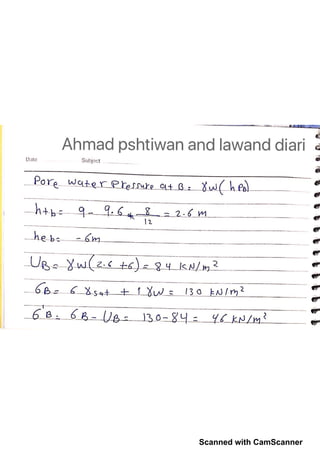 Ahmad pshtiwan and lawand diari
Date Subject
Pore water Pressure at B = γw (hPB)
htb = 9 - 9.6 * 8/12 = 2.6 m
heb = - 6m
UB = γw (2.6 + 6) = 84 KN/m²
σB = 6 γsat + 1 γw = 130 kN/m²
σ'B = σB - UB = 130 - 84 = 46 kN/m²
Scanned with CamScanner